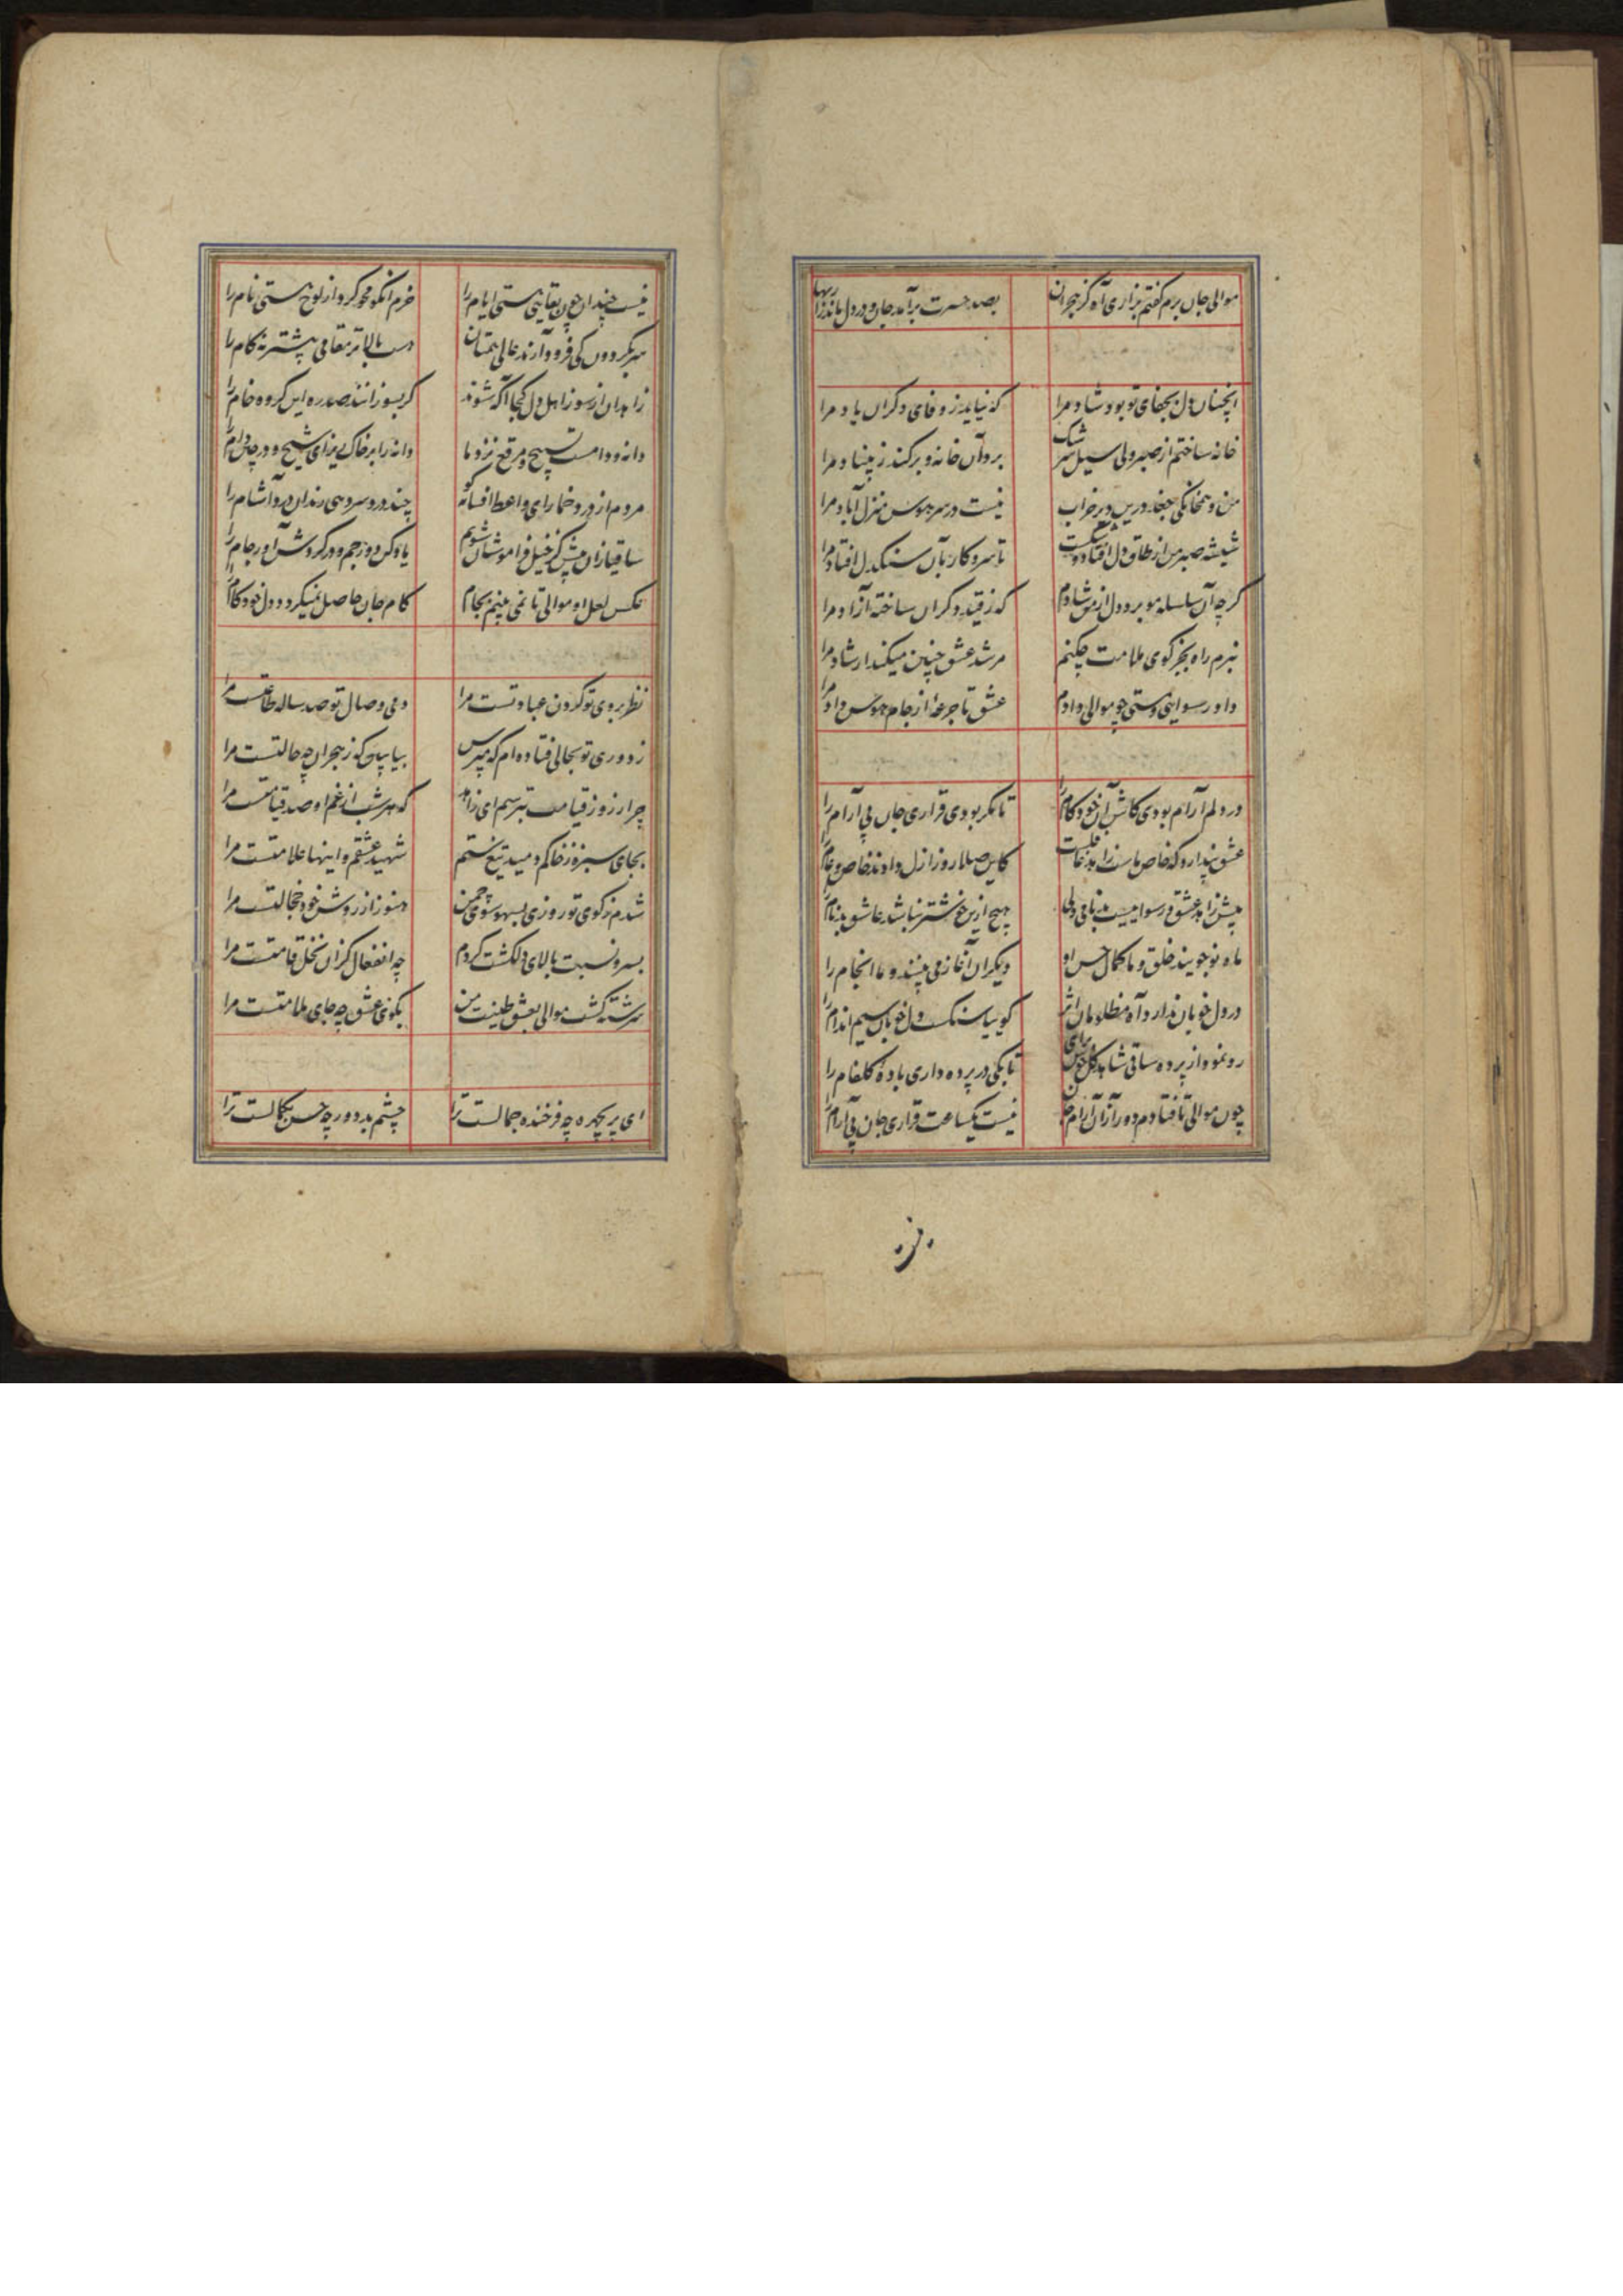 موالی جان برم گفتم بزاری آه کز هجران
بصد حسرت برآمد جان و در دل ماند
آنچنان دل بجفای تو بود شاد مرا
که نیاید ز وفای دگران یاد مرا
خانه ساختم از صبر ولی سیل سرشک
برد آن خانه و برکند ز بنیاد مرا
من و همخانگی جغد درین دیر خراب
نیست در سر هوس منزل آباد مرا
شیشه صبر من از طاق دل افتاد و شکست
تا سر و کار بآن سنگدل افتاد مرا
گرچه آن سلسله مو برد دل از من شادم
که ز قید دگران ساخته آزاد مرا
نبرم راه بجز کوی ملامت چکنم
مرشد عشق چنین میکند ارشاد مرا
داد رسوایی و مستی چو موالی دادم
عشق تا جرعهٔ از جام هوس داد مرا
در دلم آرام بودی کاش آن خودکام را
تا مگر بودی قراری جان بی آرام را
عشق پندارد که خاص ماست زاهد
کاین صلا روز ازل دادند خاص و عام را
پیش زاهد عشق و رسواییست بدنامی ولی
هیچ ازین خوشتر نباشد عاشق بدنام را
ماه نو جویند خلق و ما کمال حسن او
دیگران آغاز می بینند و ما انجام را
در دل خوبان ندارد آه مظلومان اثر
گوییا سنگست دل خوبان سیم اندام را
رو نمود از پرده ساقی شاهد گل
تا بکی در پرده داری بادهٔ گلفام را
چون موالی تا فتادم دور از آن آرام جان
نیست یکساعت قراری جان بی آرام را
نیست چندان چون بقایی هستی ایام را
خرم آنکو محو کرد از لوح هستی نام را
سر بگردون کی فرود آرند عالی همتان
دست بالاتر مقامی پیشتر نه گام را
زاهدان از سوز اهل دل کجا آگه شوند
گر بسوزانند صد ره این گروه خام را
دانه و دامست تسبیح و مرقع نزد ما
دانه را بر خاک ریز ای شیخ و در چین دام را
مردم از درد خمار ای واعظ افسانه گو
چند دردسر دهی رندان درد آشام را
ساقیا زان پیش کز خیل فراموشان شویم
یاد کن دور جم و در گردش آور جام را
عکس لعل او موالی تا نمی بینم بجام
کام جان حاصل نمیگردد دل خودکام را
نظر بروی تو کردن عبادتست مرا
دمی وصال تو صد ساله طاعتست مرا
ز دوری تو بحالی فتاده ام که مپرس
بیا ببین که ز هجران چه حالتست مرا
چرا ز روز قیامت بترسم ای زاهد
که هر شب از غم او صد قیامتست مرا
بجای سبزه ز خاکم دمید تیغ ستم
شهید عشقم و اینها علامتست مرا
شدم ز کوی تو روزی بسهو سوی چمن
هنوز از روش خود خجالتست مرا
بسرو نسبت بالای دلکشت کردم
چه انفعال کزان نخل قامتست مرا
سرشته گشت موالی بعشق طینت من
بکوی عشق چه جای ملامتست مرا
ای پریچهره چه فرخنده جمالست ترا
چشم بد دور چه حسن بکمالست ترا